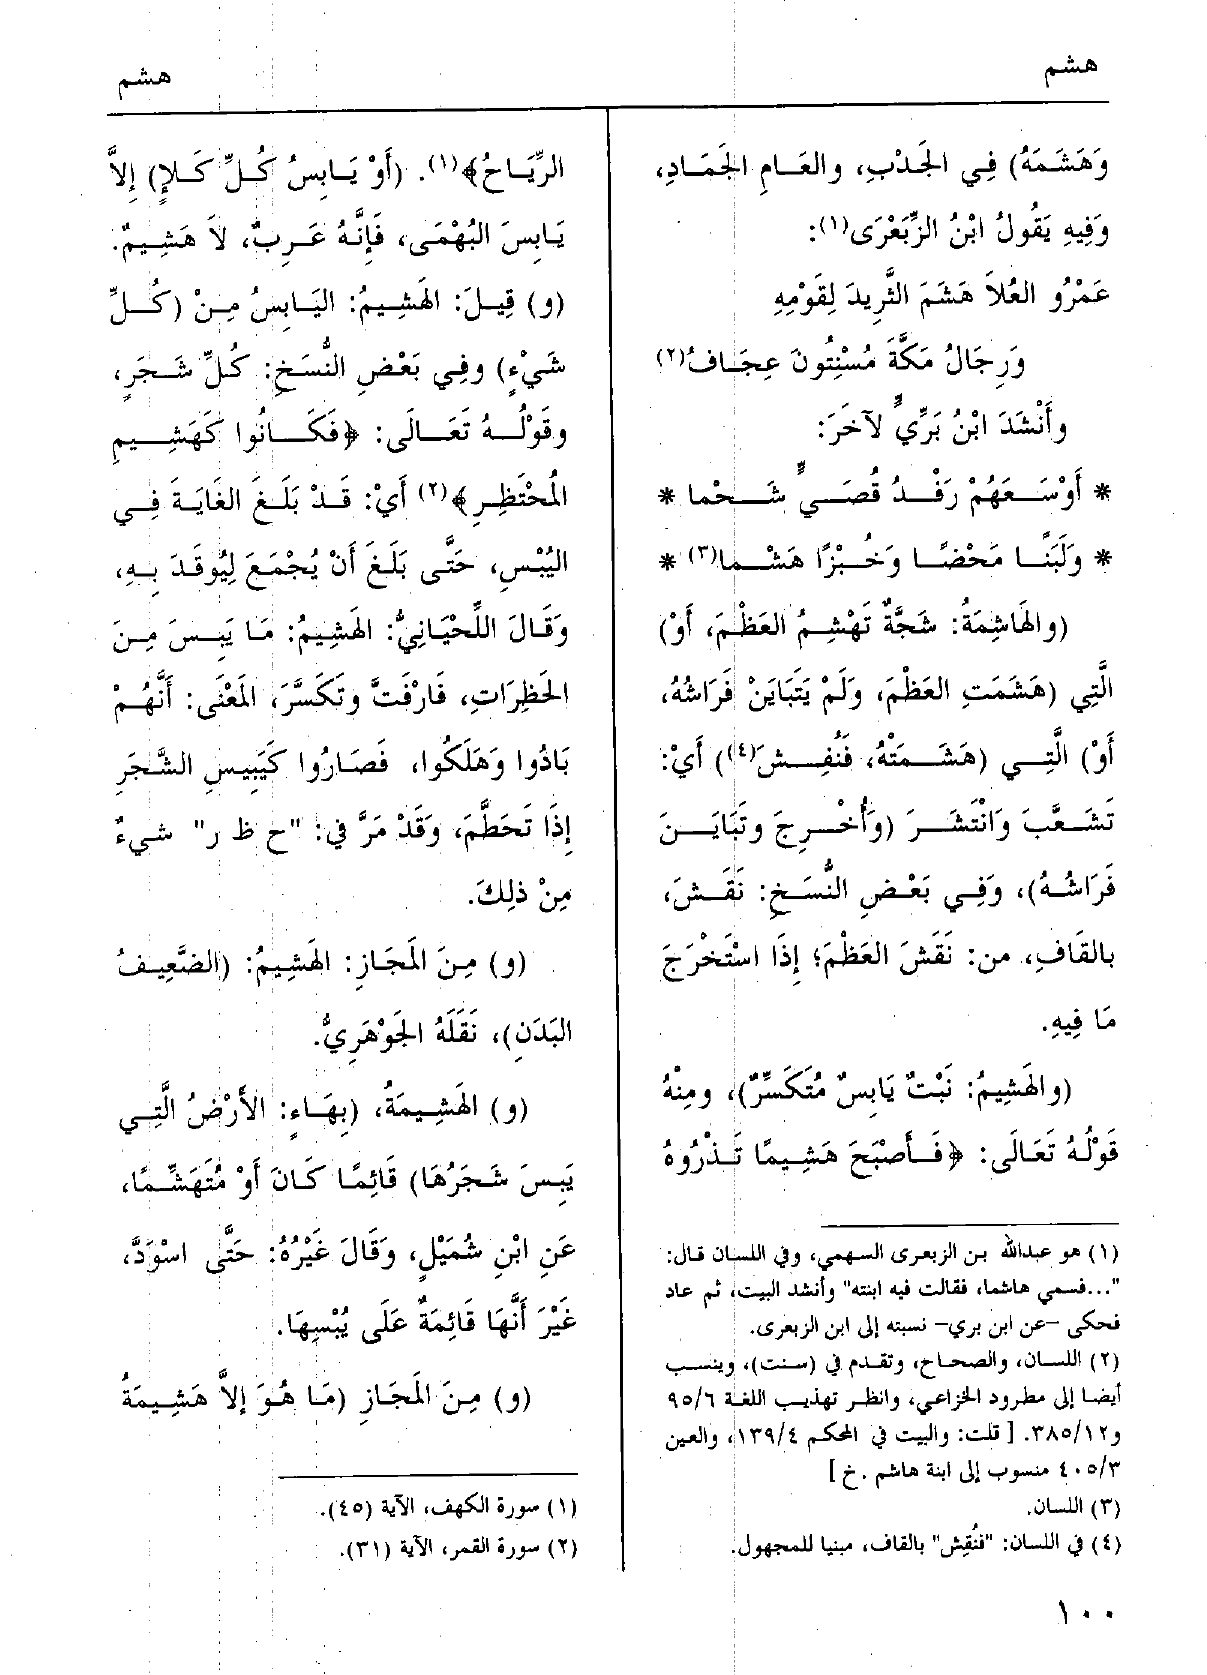 هشم
وَهَشَمَهُ) فِي الجَدْبِ، والعَامِ الجَمَادِ،
وَفِيهِ يَقُولُ ابْنُ الزِّبَعْرَى(١):
عَمْرُو العُلاَ هَشَمَ الثَّرِيدَ لِقَوْمِهِ
وَرِجَالُ مَكَّةَ مُسْنِتُونَ عِجَافُ(٢)
وأَنْشَدَ ابْنُ بَرِّيٍّ لآخَرَ:
* أَوْسَعَهُمْ رَفْدُ قُصَيٍّ شَحْما *
* وَلَبَنًا مَحْضًا وَخُبْزًا هَشْما(٣) *
(والهَاشِمَةُ: شَجَّةٌ تَهْشِمُ العَظْمَ، أَوْ)
الَّتِي (هَشَمَتِ العَظْمَ، وَلَمْ يَتَبَايَنْ فَرَاشُهُ،
أَوْ) الَّتِي (هَشَمَتْهُ، فَنُفِشَ(٤)) أَيْ:
تَشَعَّبَ وَانْتَشَرَ (وَأُخْرِجَ وتَبَايَنَ
فَرَاشُهُ)، وَفِي بَعْضِ النُّسَخِ: نَقَشَ،
بالقَافِ، من: نَقَشَ العَظْمَ؛ إِذَا اسْتَخْرَجَ
مَا فِيهِ.
(والهَشِيمُ: نَبْتٌ يَابِسٌ مُتَكَسِّرٌ)، ومِنْهُ
قَوْلُهُ تَعَالَى: ﴿فَأَصْبَحَ هَشِيمًا تَذْرُوهُ
(١) هو عبدالله بن الزبعرى السهمي، وفي اللسان قال:
"...فسمي هاشما، فقالت فيه ابنته" وأنشد البيت، ثم عاد
فحكى -عن ابن بري- نسبته إلى ابن الزبعرى.
(٢) اللسان، والصحاح، وتقدم في (سنت)، وينسب
أيضا إلى مطرود الخزاعي، وانظر تهذيب اللغة ٩٥/٦
و٣٨٥/١٢. [ قلت: والبيت في المحكم ١٣٩/٤، والعين
٤٠٥/٣ منسوب إلى ابنة هاشم .خ ]
(٣) اللسان.
(٤) في اللسان: "فنُقِش" بالقاف، مبنيا للمجهول.
١٠٠
هشم
الرِّيَاحُ﴾(١). (أَوْ يَابِسُ كُلِّ كَلإٍ) إِلاَّ
يَابِسَ البُهْمَى، فَإِنَّهُ عَرِبٌ، لاَ هَشِيمٌ.
(و) قِيلَ: الهَشِيمُ: اليَابِسُ مِنْ (كُلِّ
شَيْءٍ) وفِي بَعْضِ النُّسَخِ: كُلِّ شَجَرٍ،
وقَوْلُهُ تَعَالَى: ﴿فَكَانُوا كَهَشِيمِ
المُحْتَظِرِ﴾(٢) أَيْ: قَدْ بَلَغَ الغَايَةَ فِي
اليُبْسِ، حَتَّى بَلَغَ أَنْ يُجْمَعَ لِيُوقَدَ بِهِ،
وَقَالَ اللِّحْيَانِيُّ: الهَشِيمُ: مَا يَبِسَ مِنَ
الحَظِرَاتِ، فَارْفَتَّ وتَكَسَّرَ، المَعْنَى: أَنَّهُمْ
بَادُوا وَهَلَكُوا، فَصَارُوا كَيَبِيسِ الشَّجَرِ
إِذَا تَحَطَّمَ، وَقَدْ مَرَّ في: "ح ظ ر" شيءٌ
مِنْ ذلِكَ.
(و) مِنَ المَجَازِ: الهَشِيمُ: (الضَّعِيفُ
البَدَنِ)، نَقَلَهُ الجَوْهَرِيُّ.
(و) الهَشِيمَةُ، (بِهَاءٍ: الأَرْضُ الَّتِي
يَبِسَ شَجَرُهَا) قَائِمًا كَانَ أَوْ مُتَهَشِّمًا،
عَنِ ابْنِ شُمَيْلٍ، وَقَالَ غَيْرُهُ: حَتَّى اسْوَدَّ،
غَيْرَ أَنَّهَا قَائِمَةٌ عَلَى يُبْسِهَا.
(و) مِنَ المَجَازِ (مَا هُوَ إِلاَّ هَشِيمَةُ
(١) سورة الكهف، الآية (٤٥).
(٢) سورة القمر، الآية (٣١).